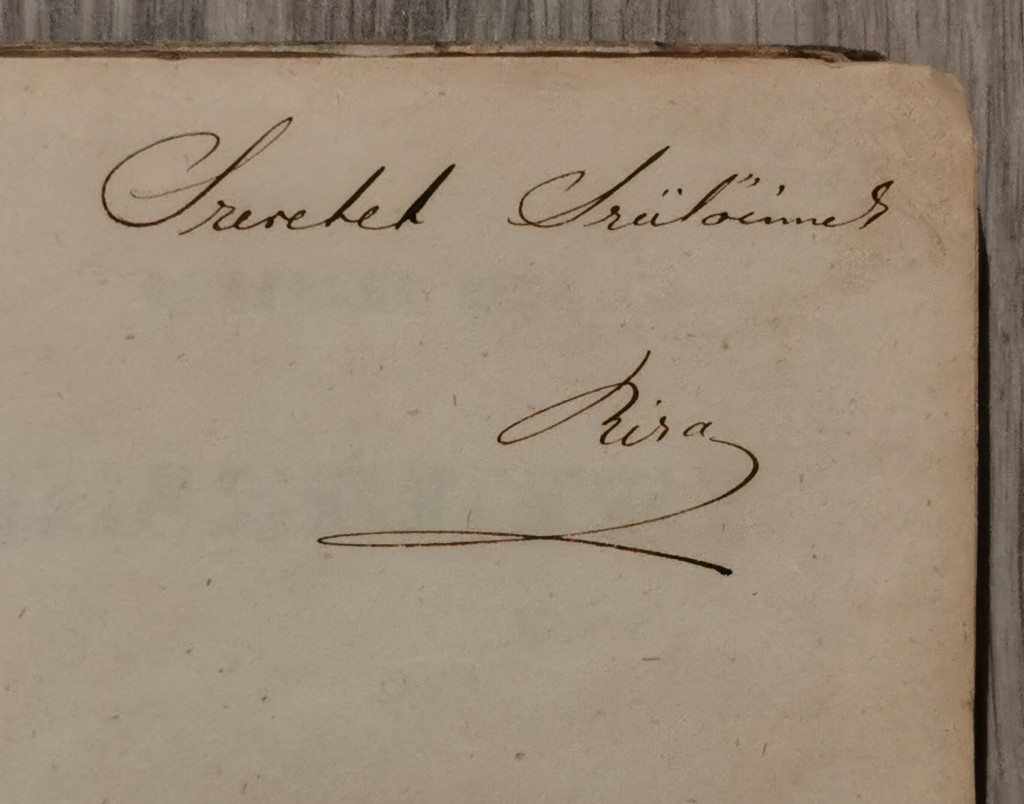 Szeretet Szülőimnek
Riza